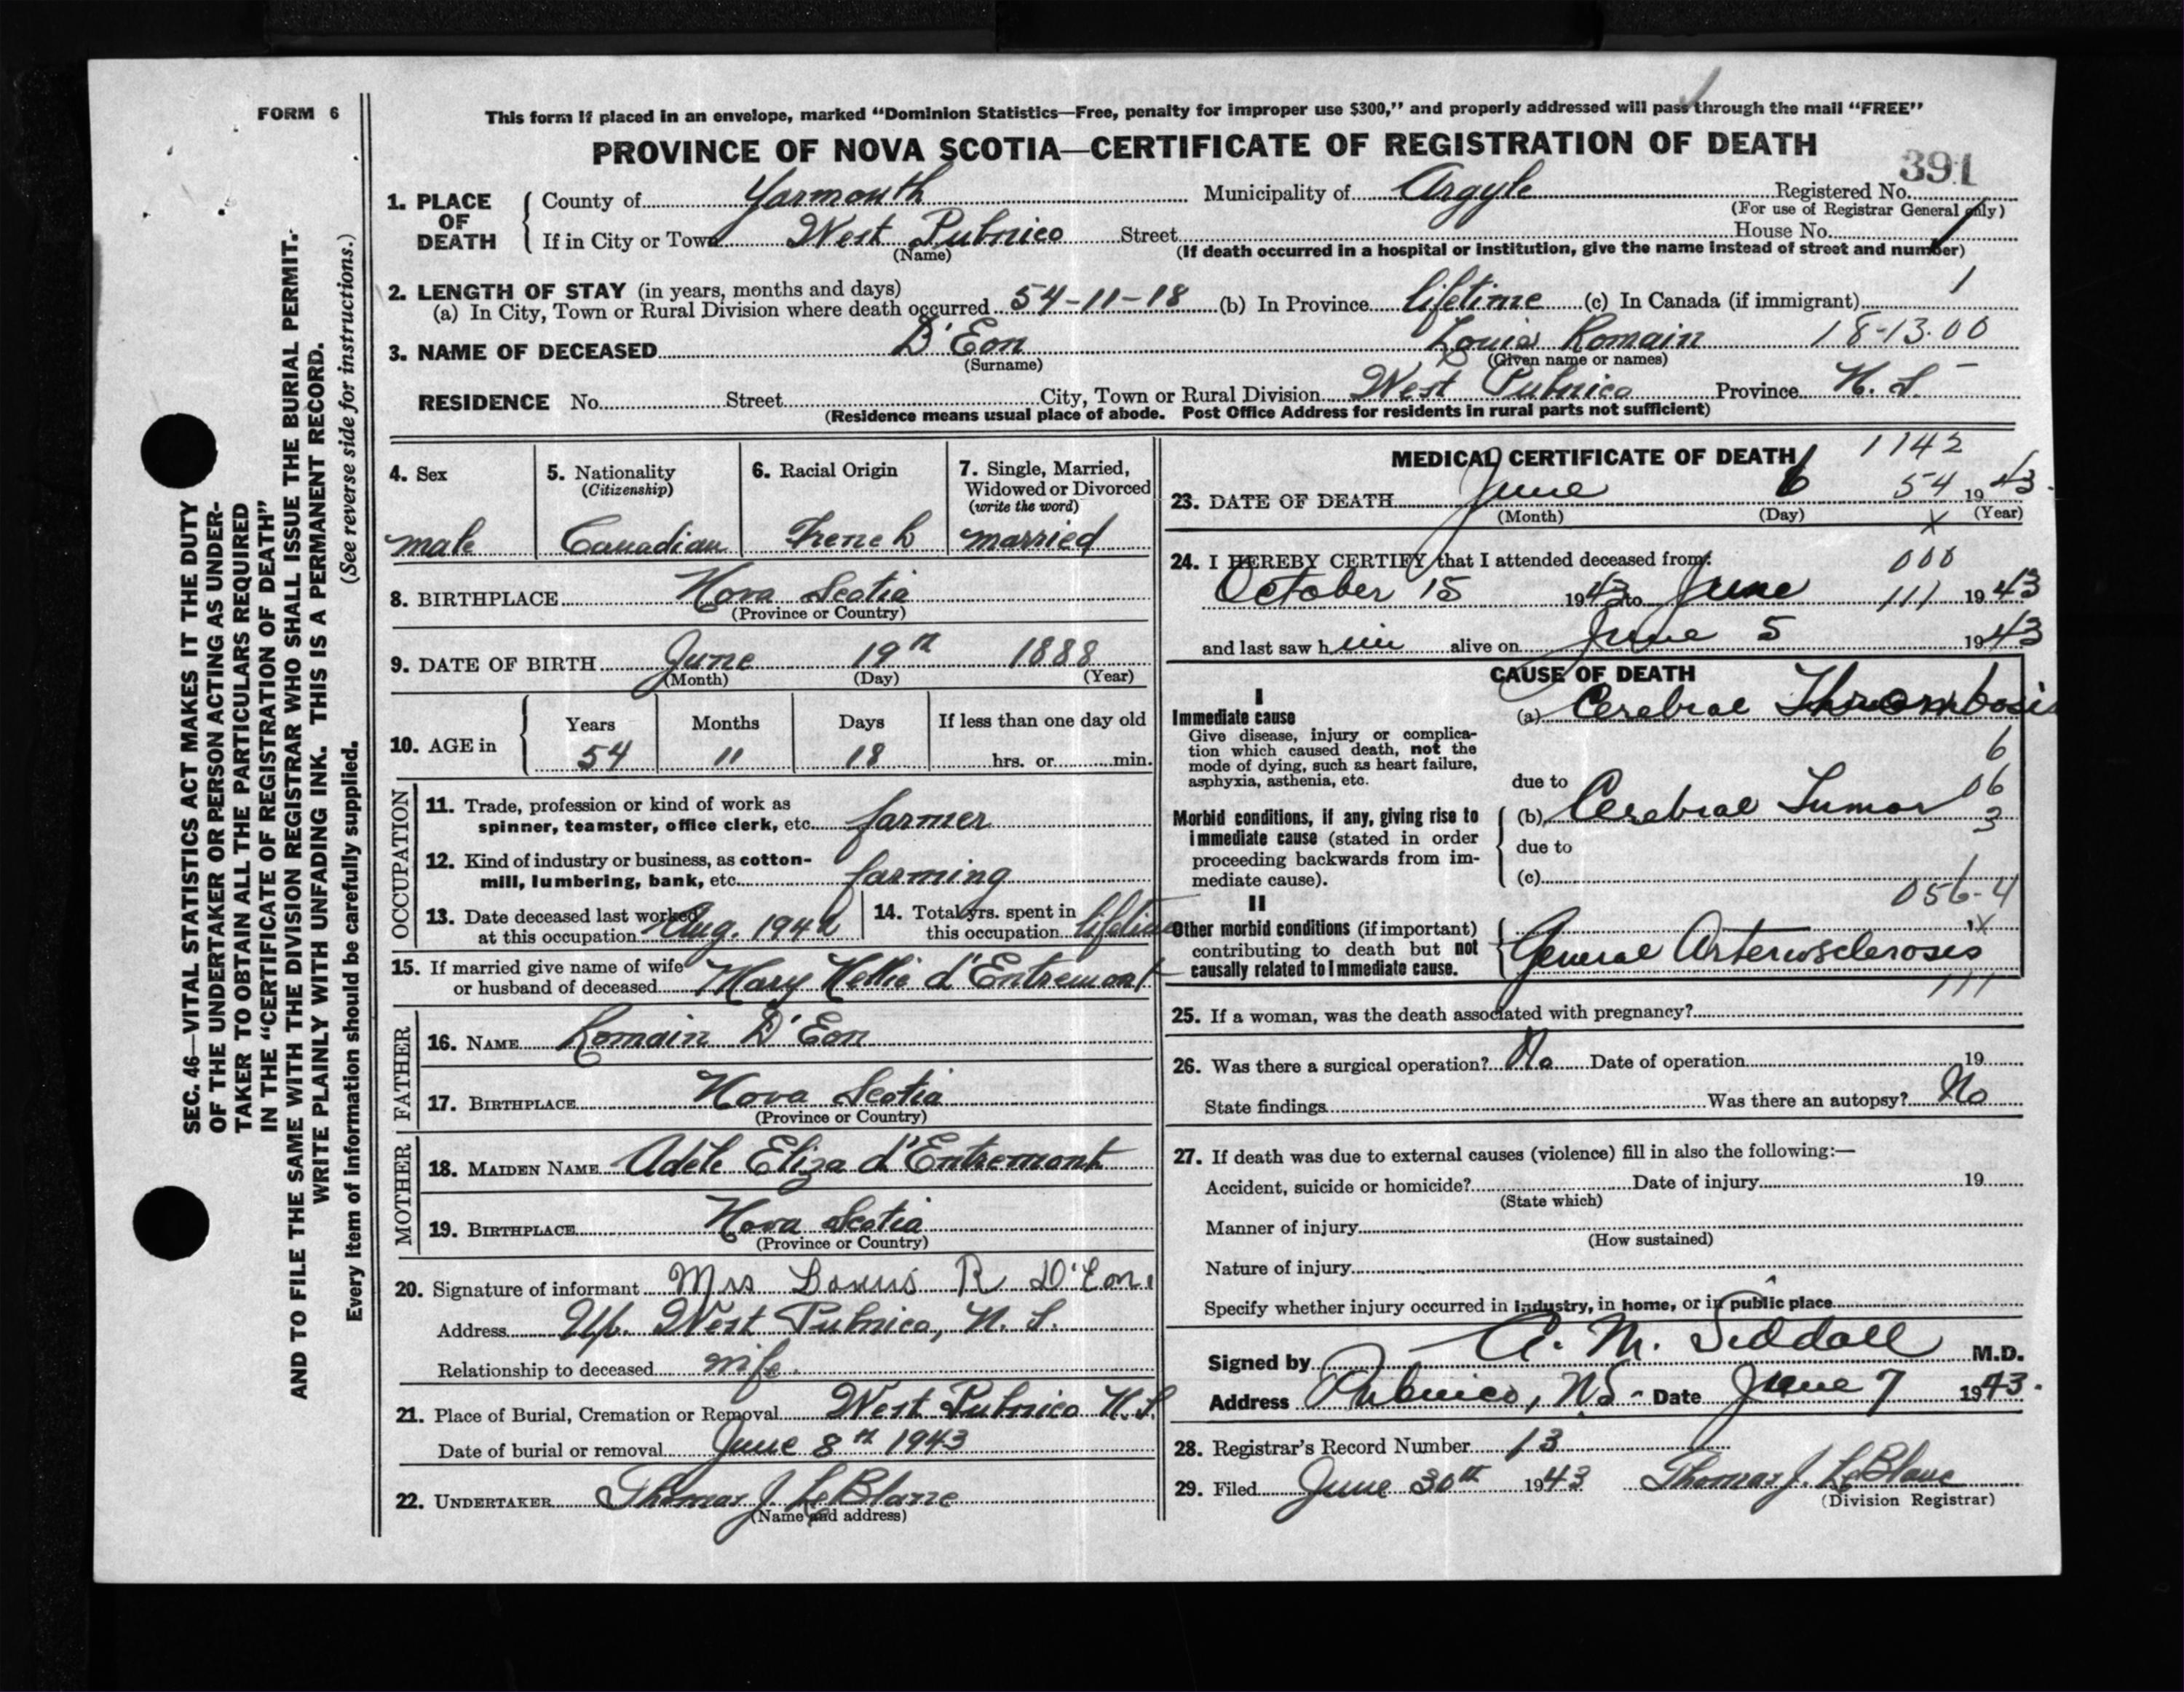 FORM 6
This form if placed in an envelope, marked "Dominion Statistics—Free, penalty for improper use $300," and properly addressed will pass through the mail "FREE"
PROVINCE OF NOVA SCOTIA—CERTIFICATE OF REGISTRATION OF DEATH
391
1. PLACE OF DEATH County of Yarmouth Municipality of Argyle Registered No.
(For use of Registrar General only)
If in City or Town West Pubnico Street House No.
(Name) (If death occurred in a hospital or institution, give the name instead of street and number)
2. LENGTH OF STAY (in years, months and days) 1
(a) In City, Town or Rural Division where death occurred 54-11-18 (b) In Province lifetime (c) In Canada (if immigrant)
3. NAME OF DECEASED D'Eon Louis Romain 18-13.00
(Surname) (Given name or names)
RESIDENCE No. Street City, Town or Rural Division West Pubnico Province N. S.
(Residence means usual place of abode. Post Office Address for residents in rural parts not sufficient)
4. Sex
male
5. Nationality
(Citizenship)
Canadian
6. Racial Origin
French
7. Single, Married,
Widowed or Divorced
(write the word)
married
8. BIRTHPLACE Nova Scotia
(Province or Country)
9. DATE OF BIRTH June 19th 1888
(Month) (Day) (Year)
10. AGE in Years Months Days If less than one day old
54 11 18 hrs. or min.
OCCUPATION
11. Trade, profession or kind of work as
spinner, teamster, office clerk, etc. farmer
12. Kind of industry or business, as cotton-
mill, lumbering, bank, etc. farming
13. Date deceased last worked
at this occupation Aug. 1942
14. Total yrs. spent in
this occupation lifetime
15. If married give name of wife
or husband of deceased Mary Nellie d'Entremont
FATHER
16. NAME Romain D'Eon
17. BIRTHPLACE Nova Scotia
(Province or Country)
MOTHER
18. MAIDEN NAME Adèle Eliza d'Entremont
19. BIRTHPLACE Nova Scotia
(Province or Country)
20. Signature of informant Mrs Louis R D'Eon
Address Up. West Pubnico, N. S.
Relationship to deceased wife.
21. Place of Burial, Cremation or Removal West Pubnico N.S.
Date of burial or removal June 8th 1943
22. UNDERTAKER Thomas J. LeBlanc
(Name and address)
MEDICAL CERTIFICATE OF DEATH 1142
54
23. DATE OF DEATH June 6 1943.
(Month) (Day) (Year)
x
24. I HEREBY CERTIFY that I attended deceased from: 000
October 15 1943 to June 111 1943
and last saw him alive on June 5 1943
CAUSE OF DEATH
I
Immediate cause
Give disease, injury or complica-
tion which caused death, not the
mode of dying, such as heart failure,
asphyxia, asthenia, etc.
(a) Cerebral Thrombosis
6
due to
06
Morbid conditions, if any, giving rise to
immediate cause (stated in order
proceeding backwards from im-
mediate cause).
(b) Cerebral Tumor
3
due to
(c)
056-4
II
Other morbid conditions (if important)
contributing to death but not
causally related to immediate cause.
x
General Arteriosclerosis
111
25. If a woman, was the death associated with pregnancy?
26. Was there a surgical operation? No Date of operation 19
State findings Was there an autopsy? No
27. If death was due to external causes (violence) fill in also the following:—
Accident, suicide or homicide? Date of injury 19
(State which)
Manner of injury
(How sustained)
Nature of injury
Specify whether injury occurred in industry, in home, or in public place
Signed by A. M. Siddall M.D.
Address Pubnico, NS - Date June 7 1943.
28. Registrar's Record Number 13
29. Filed June 30th 1943 Thomas J. LeBlanc
(Division Registrar)
SEC. 46—VITAL STATISTICS ACT MAKES IT THE DUTY
OF THE UNDERTAKER OR PERSON ACTING AS UNDER-
TAKER TO OBTAIN ALL THE PARTICULARS REQUIRED
IN THE "CERTIFICATE OF REGISTRATION OF DEATH"
AND TO FILE THE SAME WITH THE DIVISION REGISTRAR WHO SHALL ISSUE THE BURIAL PERMIT.
WRITE PLAINLY WITH UNFADING INK. THIS IS A PERMANENT RECORD.
Every item of information should be carefully supplied. (See reverse side for instructions.)